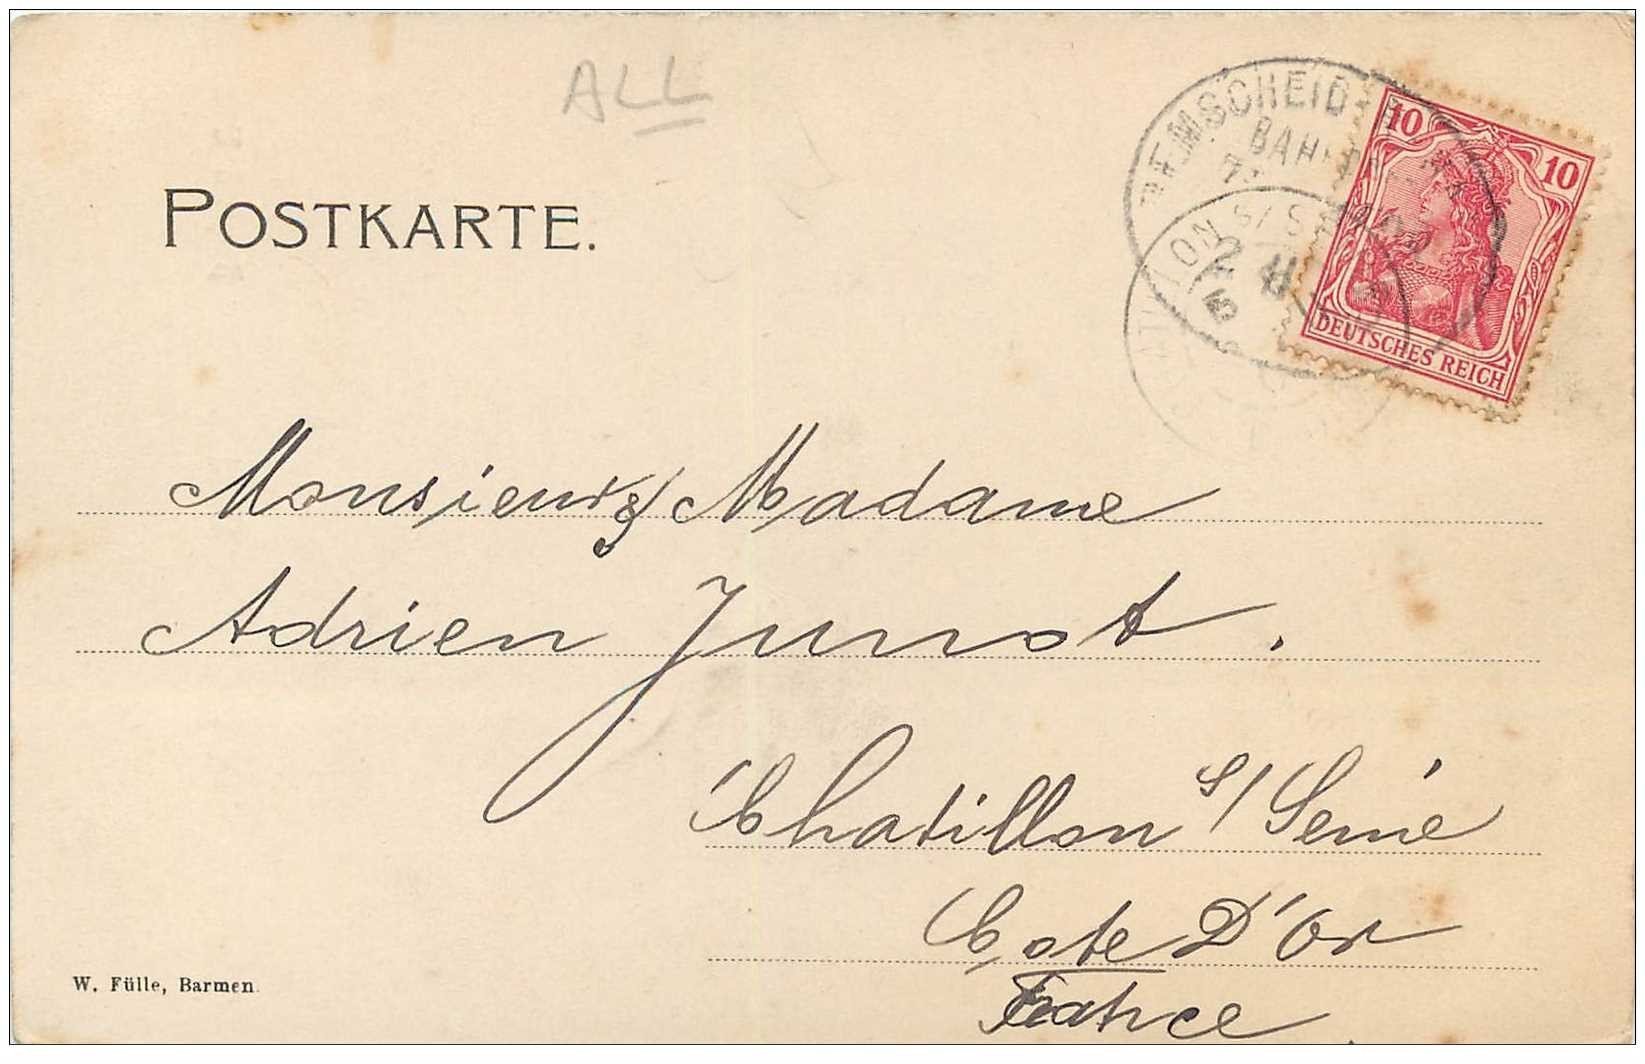 ALL
POSTKARTE.
REMSCHEID-
BAHNH
ON S/ S
10
10
DEUTSCHES REICH
Monsieur & Madame
Adrien Junot.
Chatillon s/ Seine
Cote D'Or
France.
W. Fülle, Barmen.